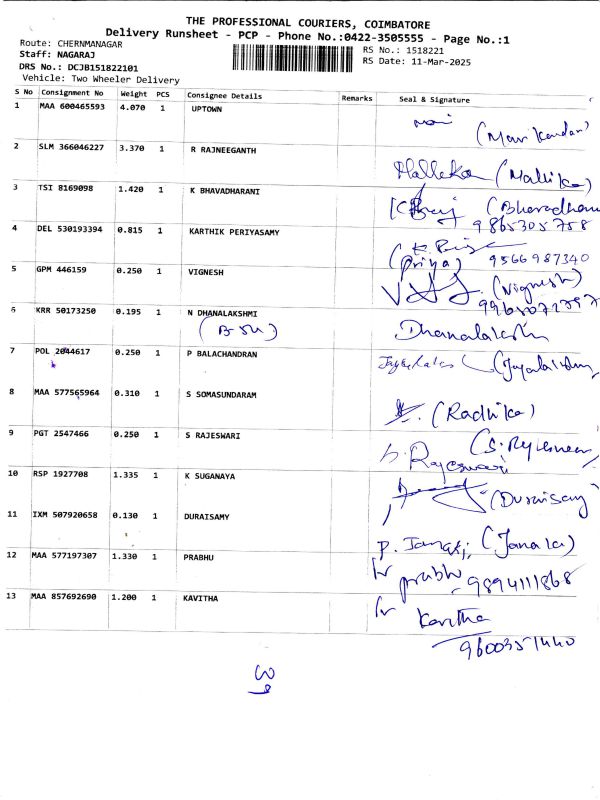 THE PROFESSIONAL COURIERS, COIMBATORE
Delivery Runsheet - PCP - Phone No.:0422-3505555 - Page No.:1
Route: CHERNMANAGAR
RS No.: 1518221
Staff: NAGARAJ
RS Date: 11-Mar-2025
DRS No.: DCJB151822101
Vehicle: Two Wheeler Delivery
S No Consignment No Weight PCS Consignee Details Remarks Seal & Signature
1 MAA 600465593 4.070 1 UPTOWN
2 SLM 366046227 3.370 1 R RAJNEEGANTH
(Mallika)
3 TSI 8169098 1.420 1 K BHAVADHARANI
9865305758
4 DEL 530193394 0.815 1 KARTHIK PERIYASAMY
(Priya) 9566987340
5 GPM 446159 0.250 1 VIGNESH
(Vignesh)
6 KRR 50173250 0.195 1 N DHANALAKSHMI
7 POL 2044617 0.250 1 P BALACHANDRAN
8 MAA 577565964 0.310 1 S SOMASUNDARAM
(Radhika)
9 PGT 2547466 0.250 1 S RAJESWARI
S. Rajeswari
10 RSP 1927708 1.335 1 K SUGANAYA
(Duraisamy)
11 IXM 507920658 0.130 1 DURAISAMY
P. Janaki (Janaki)
12 MAA 577197307 1.330 1 PRABHU
prabhu 9894111868
13 MAA 857692690 1.200 1 KAVITHA
Kavitha
9600351440